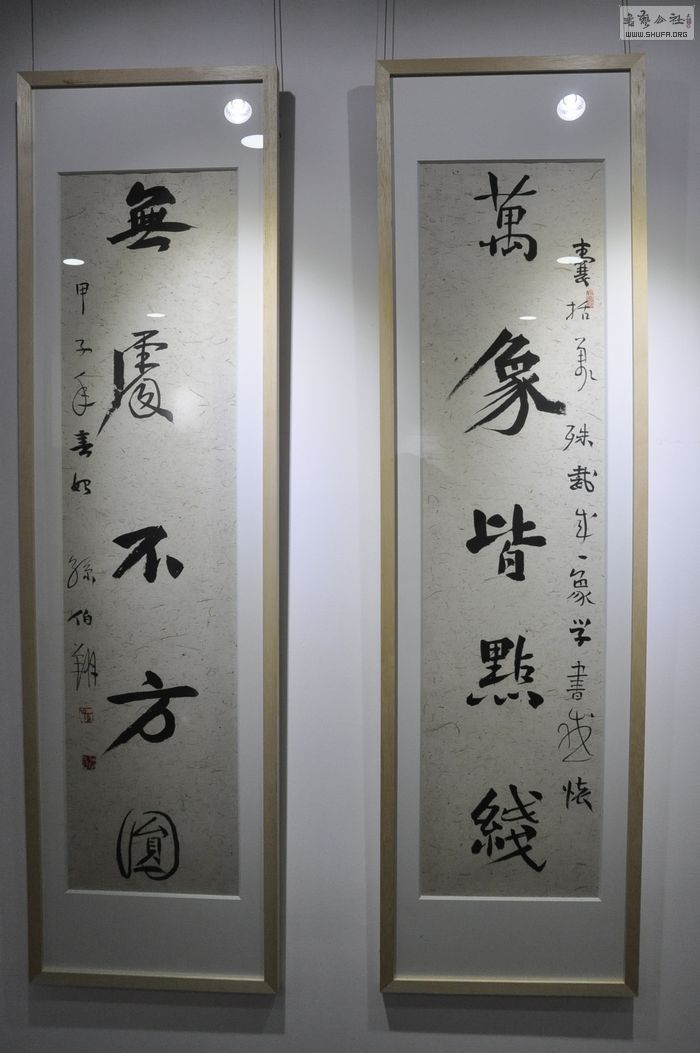 萬象皆點綫
囊括萬殊裁成一象学書感懷
無處不方圓
甲子年春始孫伯翔
書藝公社
WWW.SHUFA.ORG